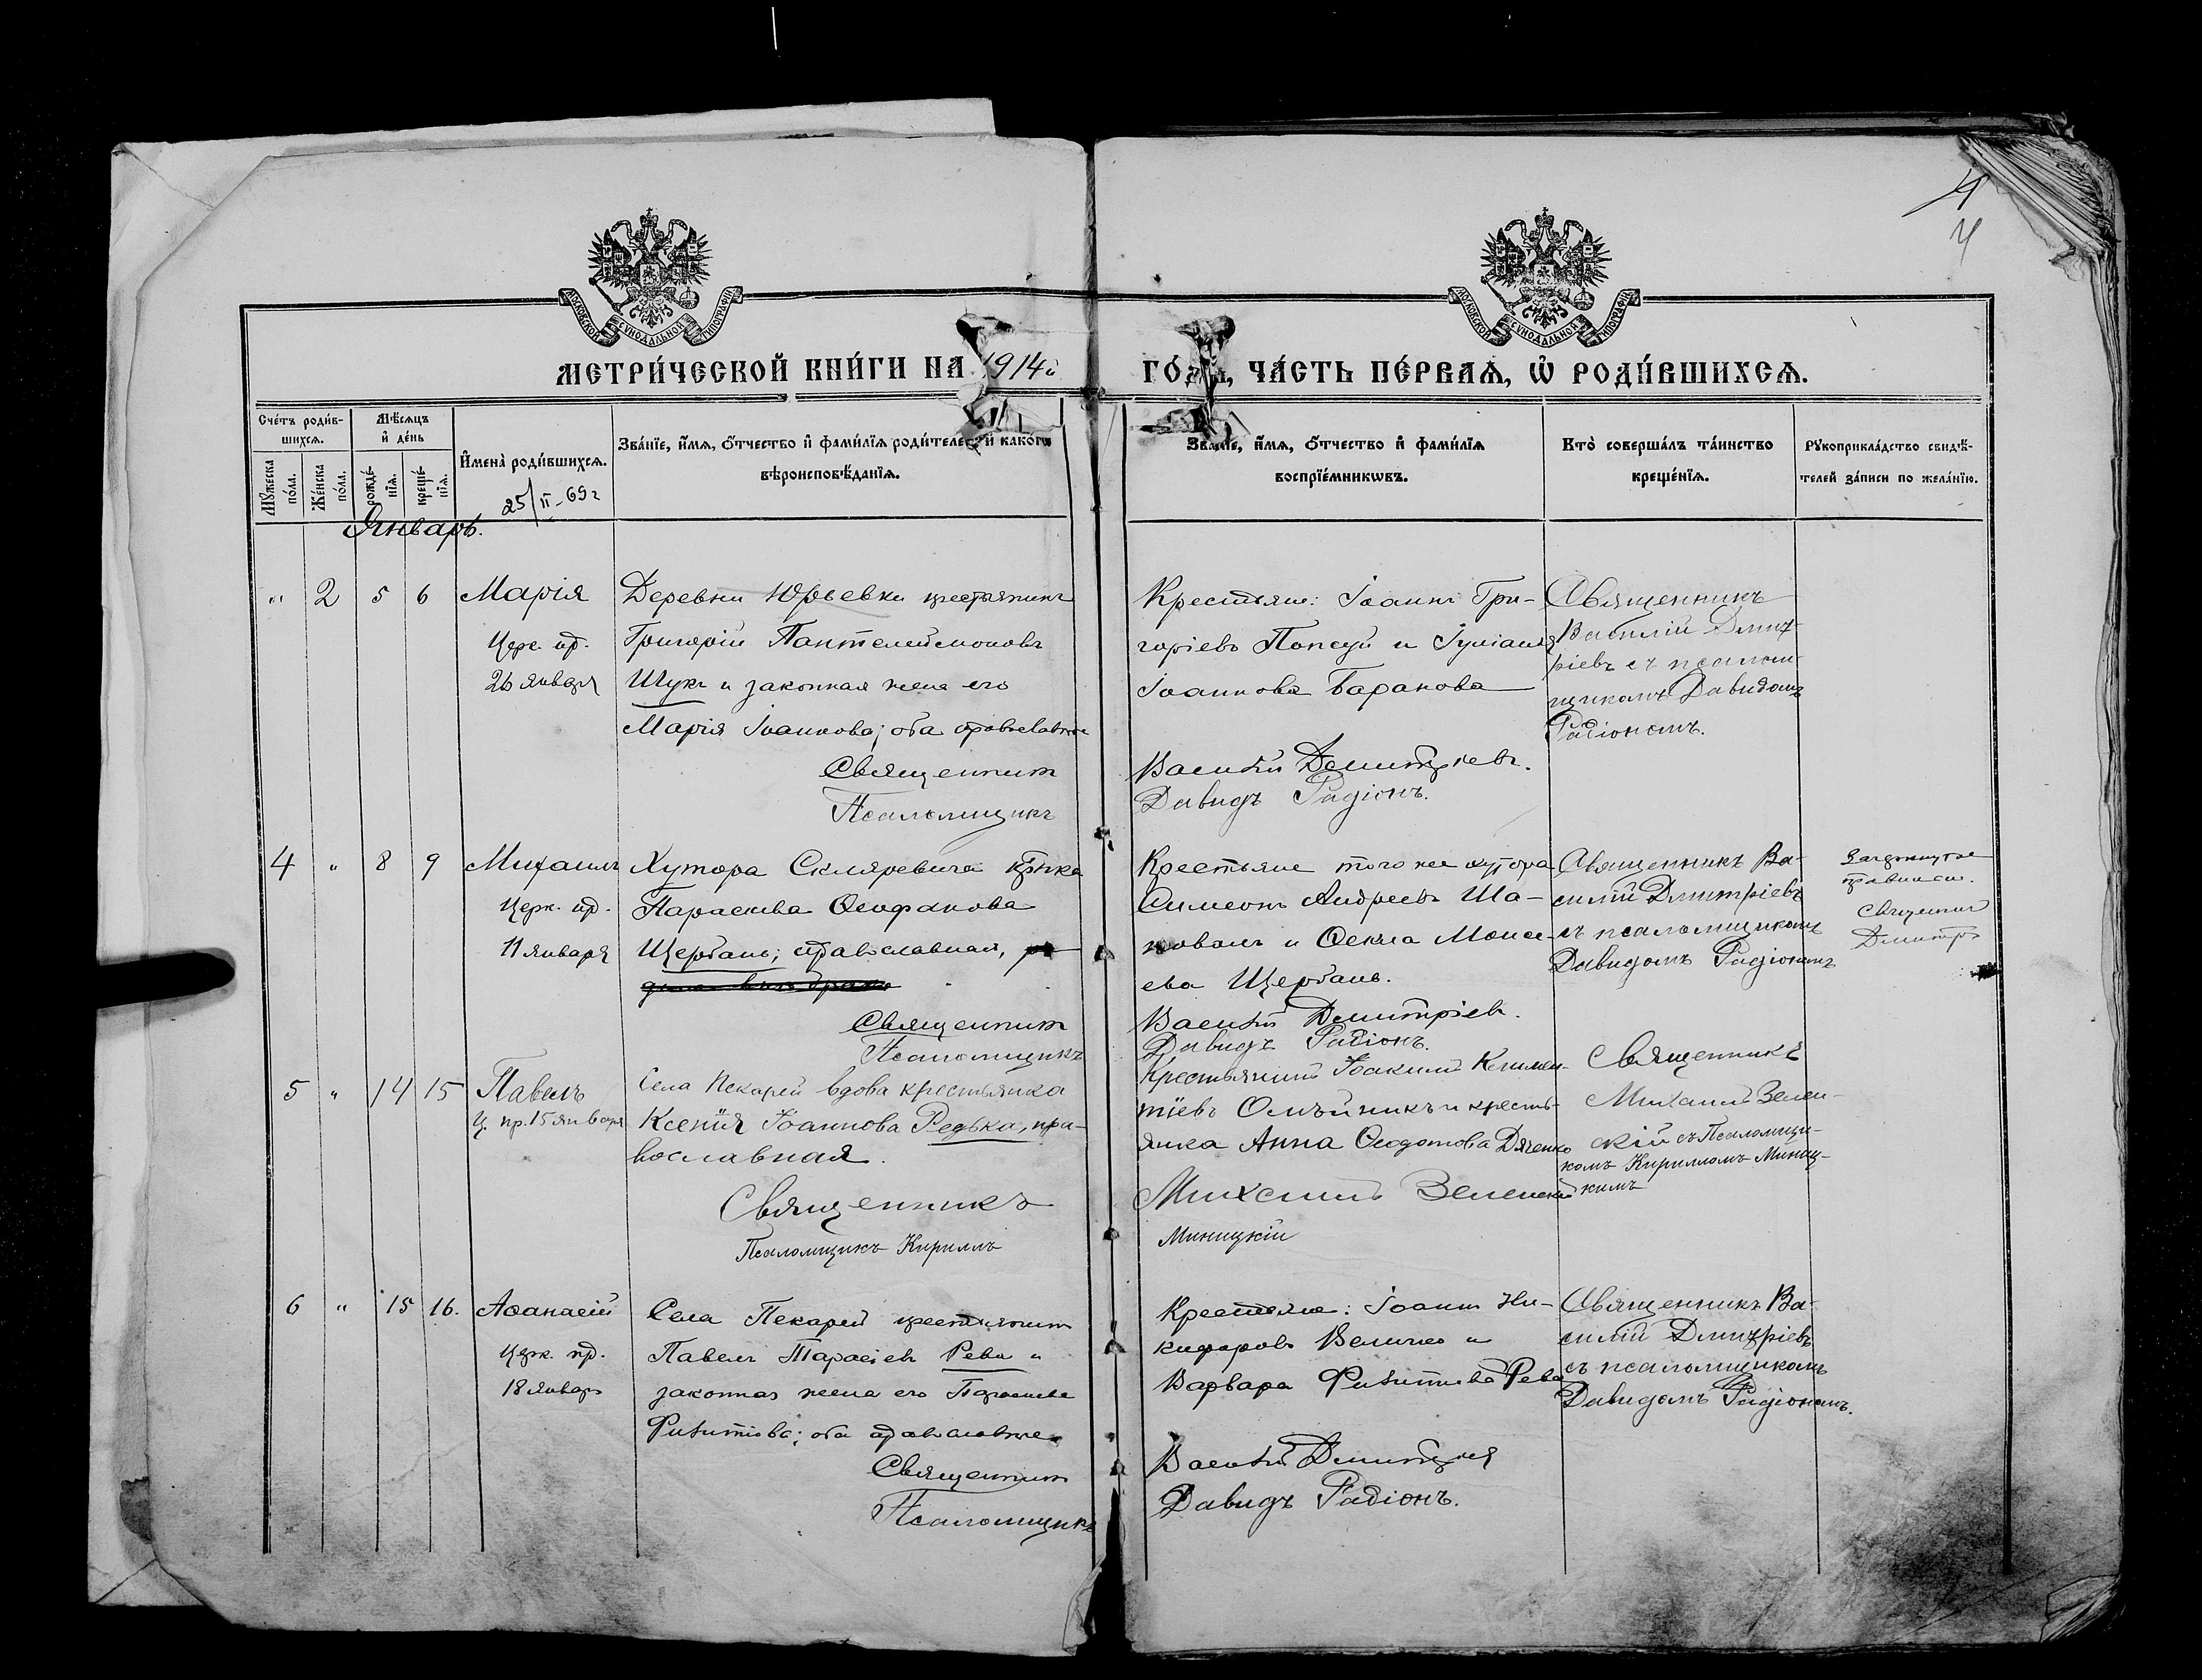 4
4
МОСКОВСКОЙ СѴНОДАЛЬНОЙ ТИПОГРАФІИ
МОСКОВСКОЙ СѴНОДАЛЬНОЙ ТИПОГРАФІИ
МЕТРИ́ЧЕСКОЙ КНИ́ГИ НА 1914й ГО́ДЪ, ЧА́СТЬ ПЕ́РВАѦ, Ѡ҆ РОДИ́ВШИХСѦ.
Сче́тъ роди́в-
шихсѧ.
Мꙋ́жеска по́ла.
Же́нска по́ла.
Мѣ́сѧцъ
и҆ де́нь
рожде́-
нїѧ.
креще́-
нїѧ.
И҆мена̀ роди́вшихсѧ.
25/II-69г
Зва́нїе, и҆́мѧ, ѻ҆́тчество и҆ фами́лїѧ роди́телей, и҆ како́гѡ
вѣроисповѣ́данїѧ.
Зва́нїе, и҆́мѧ, ѻ҆́тчество и҆ фами́лїѧ
воспрїе́мникѡвъ.
Кто̀ соверша́лъ та́инство
креще́нїѧ.
Рꙋкоприкла́дство свидѣ́-
телей за́писи по жела́нїю.
Январь.
" 2 5 6 Марія
Церк. пр.
26 января
Деревни Юрьевки крестьянинъ
Григорій Пантелеймоновъ
Шукъ и законная жена его
Марія Іоаннова; оба православные
Священникъ
Псаломщикъ
Крестьяне: Іоаннъ Гри-
горіевъ Попсуй и Іуліанія
Іоаннова Баранова
Василій Димитріевъ.
Давидъ Радіонъ.
Священникъ
Василій Дмит-
ріевъ съ псалом-
щикомъ Давидомъ
Радіономъ.
4 " 8 9 Михаилъ
Церк. пр.
11 января
Хутора Скляревича кр-нка
Параскева Ѳеофанова
Щербань; православная,
Священникъ
Псаломщикъ
Крестьяне того же хутора
Симеонъ Андреевъ Ша-
повалъ и Ѳекла Моисе-
ева Щербань.
Василій Димитріевъ.
Давидъ Радіонъ.
Священникъ Ва-
силій Дмитріевъ
съ псаломщикомъ
Давидомъ Радіономъ
Зачеркнутое
Священникъ
5 " 14 15 Павелъ
Ц. пр. 15 января
Села Пекарей вдова крестьянка
Ксенія Іоаннова Редька, пра-
вославная.
Священникъ
Псаломщикъ Кириллъ
Крестьянинъ Іоакимъ Климен-
тіевъ Олѣйникъ и кресть-
янка Анна Ѳеодотова Дяченко
Михаилъ Зеленскій
Миницкій
Священникъ
Михаилъ Зелен-
скій съ Псаломщи-
комъ Кирилломъ Миниц-
кимъ
6 " 15 16. Аѳанасій
Церк. пр.
18 январь
Села Пекарей крестьянинъ
Павелъ Тарасіевъ Рева и
законная жена его Параскева
Филиппова; оба православные
Священникъ
Псаломщикъ
Крестьяне: Іоаннъ Ни-
кифоровъ Величко и
Варвара Филиппова Рева
Василій Димитріевъ
Давидъ Радіонъ.
Священникъ Ва-
силій Дмитріевъ
съ псаломщикомъ
Давидомъ Радіономъ.